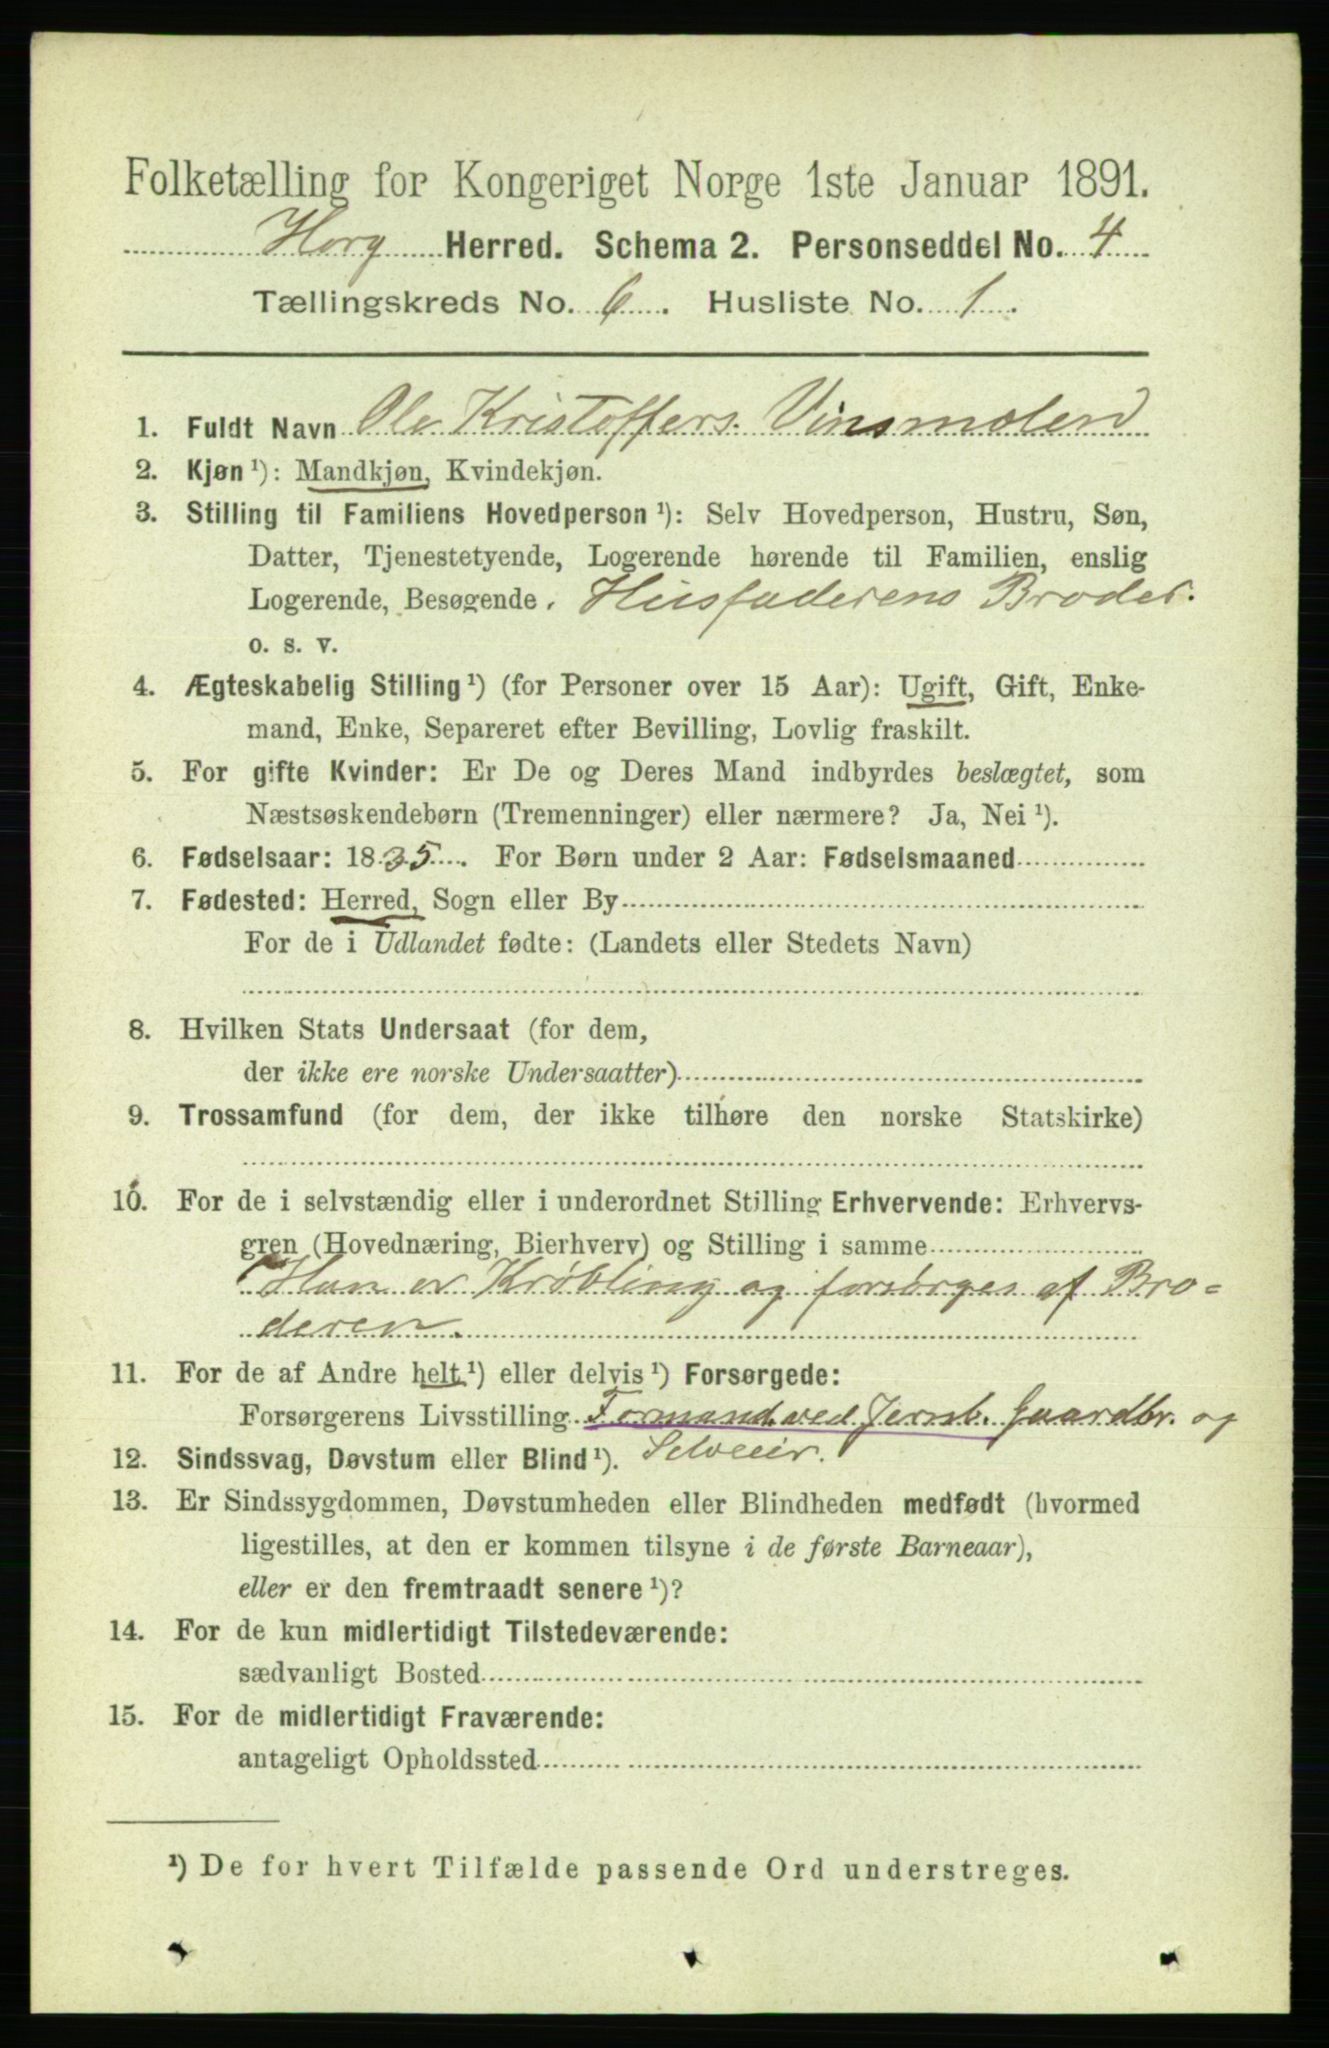 Folketælling for Kongeriget Norge 1ste Januar 1891.
Horg Herred. Schema 2. Personseddel No. 4
Tællingskreds No. 6. Husliste No. 1.
1. Fuldt Navn Ole Kristoffers. Vinsmolen
2. Kjøn ¹): Mandkjøn, Kvindekjøn.
3. Stilling til Familiens Hovedperson ¹): Selv Hovedperson, Hustru, Søn,
Datter, Tjenestetyende, Logerende hørende til Familien, enslig
Logerende, Besøgende. Husfaderens Broder.
o. s. v.
4. Ægteskabelig Stilling ¹) (for Personer over 15 Aar): Ugift, Gift, Enke-
mand, Enke, Separeret efter Bevilling, Lovlig fraskilt.
5. For gifte Kvinder: Er De og Deres Mand indbyrdes beslægtet, som
Næstsøskendebørn (Tremenninger) eller nærmere? Ja, Nei ¹).
6. Fødselsaar: 1835. For Børn under 2 Aar: Fødselsmaaned
7. Fødested: Herred, Sogn eller By
For de i Udlandet fødte: (Landets eller Stedets Navn)
8. Hvilken Stats Undersaat (for dem,
der ikke ere norske Undersaatter)
9. Trossamfund (for dem, der ikke tilhøre den norske Statskirke)
10. For de i selvstændig eller i underordnet Stilling Erhvervende: Erhvervs-
gren (Hovednæring, Bierhverv) og Stilling i samme
Han er Krøbling og forsørges af Bro-
deren.
11. For de af Andre helt ¹) eller delvis ¹) Forsørgede:
Forsørgerens Livsstilling Formand ved Jernb. Gaardbr. og
Selveier.
12. Sindssvag, Døvstum eller Blind ¹).
13. Er Sindssygdommen, Døvstumheden eller Blindheden medfødt (hvormed
ligestilles, at den er kommen tilsyne i de første Barneaar),
eller er den fremtraadt senere ¹)?
14. For de kun midlertidigt Tilstedeværende:
sædvanligt Bosted
15. For de midlertidigt Fraværende:
antageligt Opholdssted
¹) De for hvert Tilfælde passende Ord understreges.